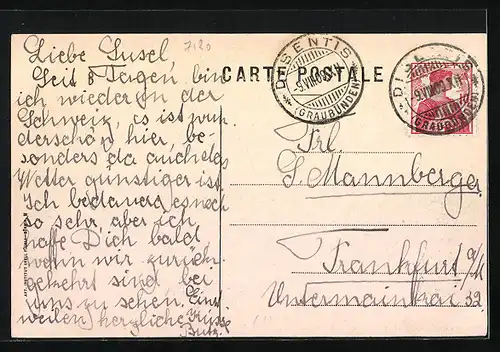 7120
Liebe Susel,
Seit 8 Tagen, bin
ich wieder in der
Schweiz, es ist wun
derschön hier, be-
sonders da auch das
Wetter günstiger ist.
Ich bedauerd es noch
so sehr, aber ich
hoffe Dich bald
wenn wir zurück
gekehrt sind bei
uns zu sehen. Einst
weilen herzliche Küsse
CARTE POSTALE
DISENTIS
-9.VIII.09.
(GRAUBÜNDEN)
DISENTIS
9.VIII.09.XI
(GRAUBÜNDEN)
Frl.
S. Mannberger
Frankfurt a/M
Untermainkai 32.